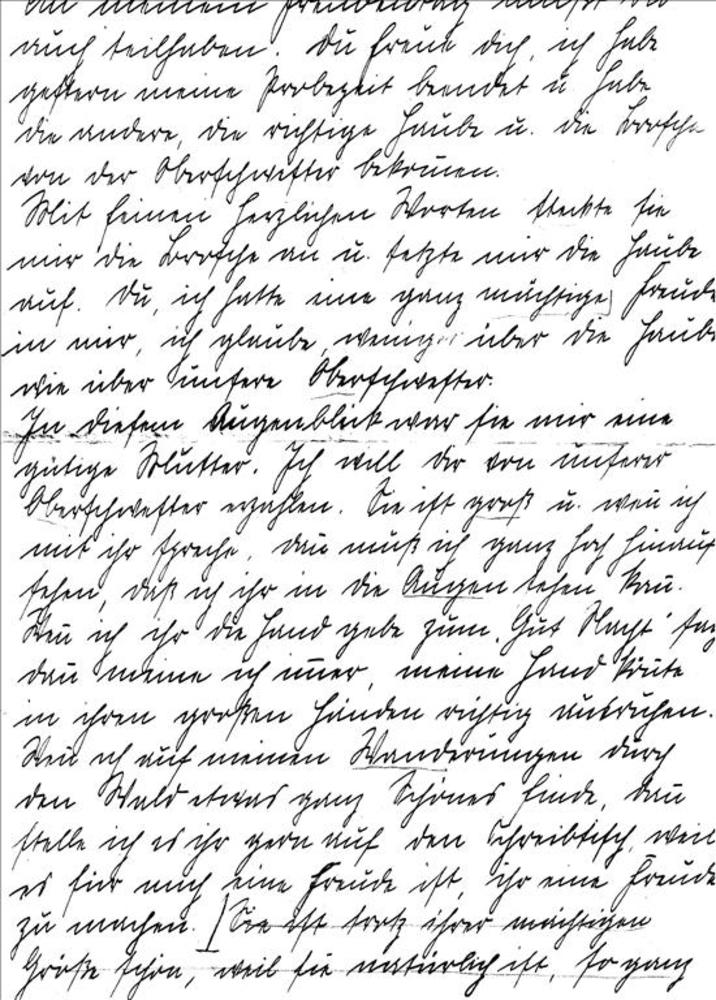 An meinem Freudentag mußt du
auch teilhaben. Du freue dich, ich habe
gestern meine Probezeit beendet u habe
die andere, die richtige Haube u. die Brosche
von der Oberschwester bekom̄en.
Mit feinen herzlichen Worten steckte sie
mir die Brosche an u. setzte mir die Haube
auf. Du, ich hatte eine ganz mächtige Freude
in mir, ich glaube, weniger über die Haube
wie über unsere Oberschwester.
In diesem Augenblick war sie mir eine
gütige Mutter. Ich will dir von unserer
Oberschwester erzählen. Sie ist groß u. wen̄ ich
mit ihr spreche, dan̄ muß ich ganz hoch hinauf
sehen, daß ich ihr in die Augen sehen kan̄.
Wen̄ ich ihr die Hand gebe zum „Gut Nacht" sag
dan̄ meine ich im̄er, meine Hand kön̄te
in ihren großen Händen richtig ausruhen.
Wen̄ ich auf meinen Wanderungen durch
den Wald etwas ganz Schönes finde, dan̄
stelle ich es ihr gern auf den Schreibtisch, weil
es für mich eine Freude ist, ihr eine Freude
zu machen. Sie ist trotz ihrer mächtigen
Größe schön, weil sie natürlich ist, so ganz